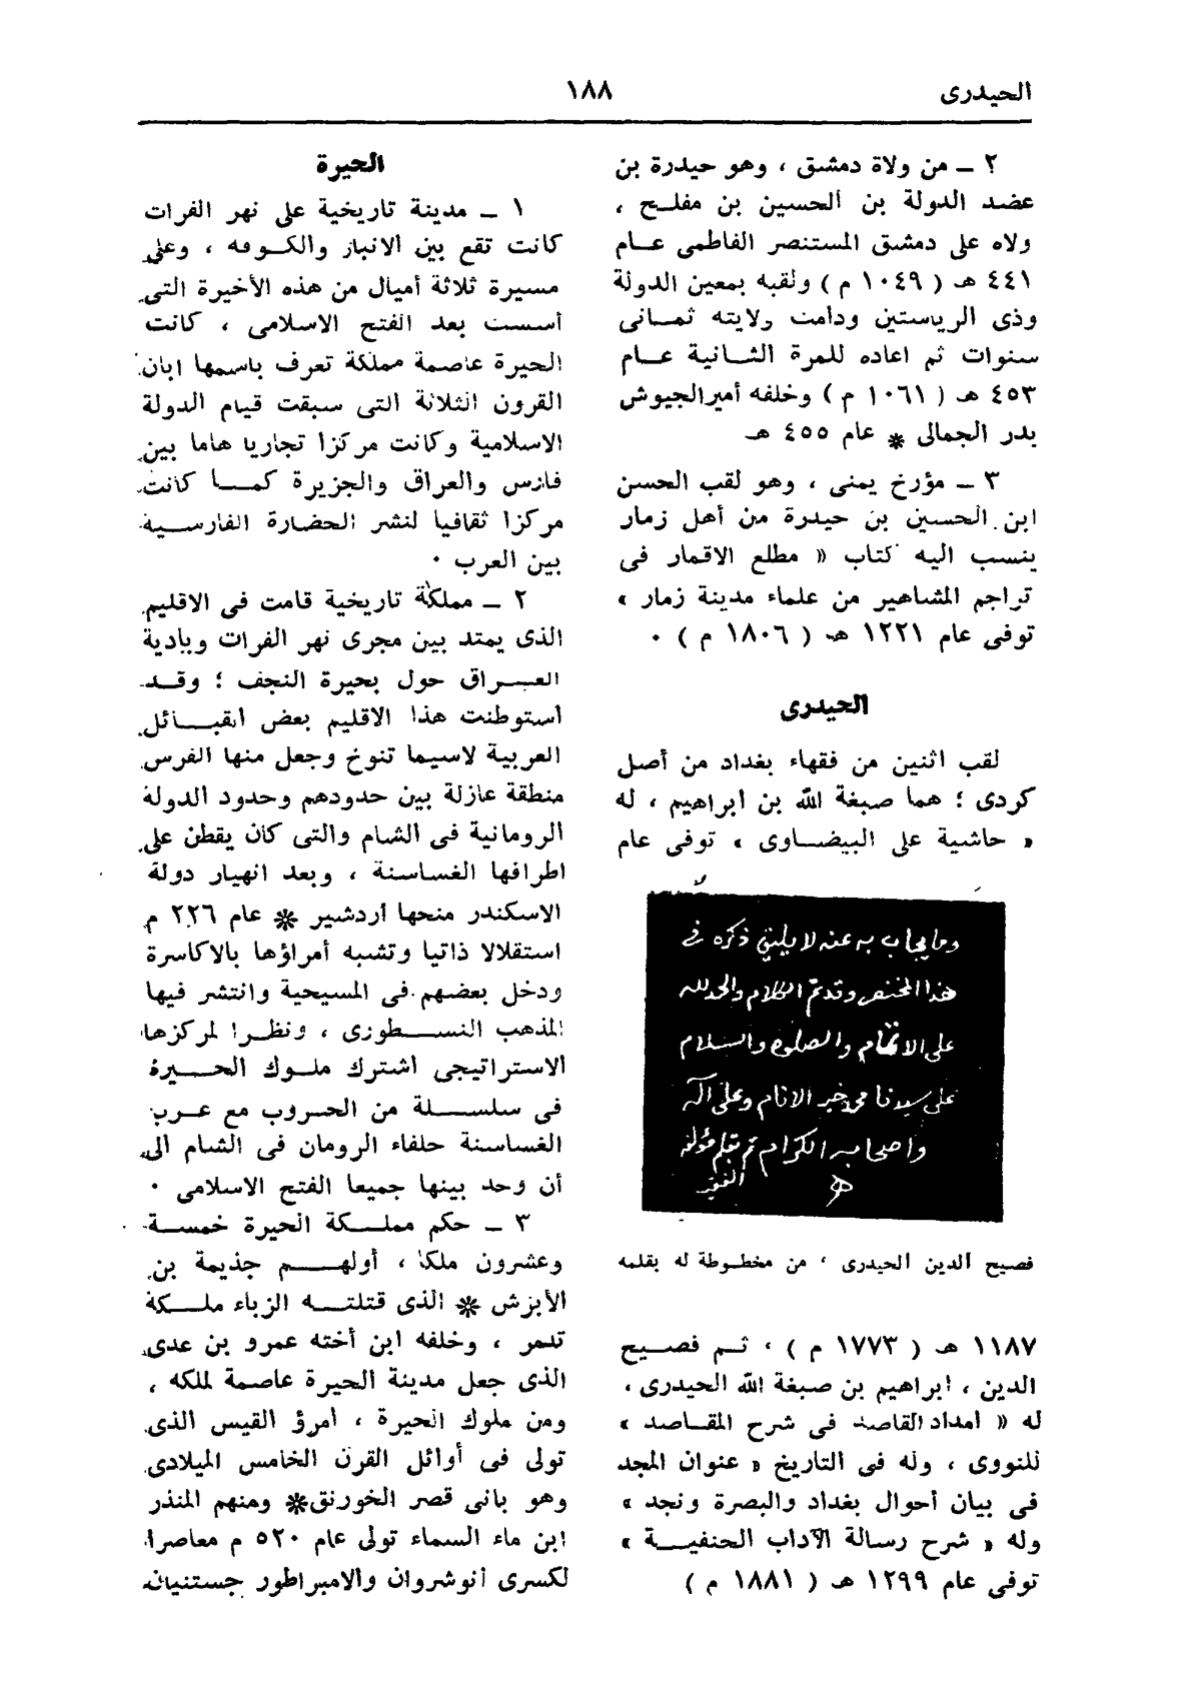 الحيدرى
١٨٨
٢ ــ من ولاة دمشق ، وهو حيدرة بن
عضد الدولة بن الحسين بن مفلـح ،
ولاه على دمشق المستنصر الفاطمى عـام
٤٤١ هـ ( ١٠٤٩ م ) ولقبه بمعين الدولة
وذى الرياستين ودامت ولايته ثمـانى
سنوات ثم اعاده للمرة الثـانية عـام
٤٥٣ هـ ( ١٠٦١ م ) وخلفه أمير الجيوش
بدر الجمالى * عام ٤٥٥ هـ
٣ ــ مؤرخ يمنى ، وهو لقب الحسن
ابن الحسين بن حيدرة من أهل زمار
ينسب اليه كتاب « مطلع الاقمار فى
تراجم المشاهير من علماء مدينة زمار »
توفى عام ١٢٢١ هـ ( ١٨٠٦ م ) ٠
الحيدرى
لقب اثنين من فقهاء بغداد من أصل
كردى ؛ هما صبغة الله بن ابراهيم ، له
« حاشية على البيضـاوى » توفى عام
وما يجاب به عنه لا يليق ذكره في
هذا المختصر وقد تم الكلام والحمد لله
على الاتمام والصلوة والسلام
على سيدنا محمد خير الانام وعلى آله
واصحابه الكرام تم بقلم مؤلفه
الفقير
فصيح الدين الحيدرى ، من مخطـوطة له بقلمه
١١٨٧ هـ ( ١٧٧٣ م ) ، ثـم فصـيح
الدين ، ابراهيم بن صبغة الله الحيدرى ،
له « امداد القاصد فى شرح المقـاصد »
للنووى ، وله فى التاريخ « عنوان المجد
فى بيان أحوال بغداد والبصرة ونجد »
وله « شرح رسالة الآداب الحنفيــة »
توفى عام ١٢٩٩ هـ ( ١٨٨١ م )
الحيرة
١ ــ مدينة تاريخية على نهر الفرات
كانت تقع بين الانبار والكـوفه ، وعلى
مسيرة ثلاثة أميال من هذه الأخيرة التى
أسست بعد الفتح الاسلامى ، كانت
الحيرة عاصمة مملكة تعرف باسمها ابان
القرون الثلاثة التى سبقت قيام الدولة
الاسلامية وكانت مركزا تجاريا هاما بين
فارس والعراق والجزيرة كمــا كانت
مركزا ثقافيا لنشر الحضارة الفارســية
بين العرب ٠
٢ ــ مملكة تاريخية قامت فى الاقليم
الذى يمتد بين مجرى نهر الفرات وبادية
العــراق حول بحيرة النجف ؛ وقــد
استوطنت هذا الاقليم بعض القبــائل
العربية لاسيما تنوخ وجعل منها الفرس
منطقة عازلة بين حدودهم وحدود الدولة
الرومانية فى الشام والتى كان يقطن على
اطرافها الغساسنة ، وبعد انهيار دولة
الاسكندر منحها أردشير * عام ٢٢٦ م
استقلالا ذاتيا وتشبه أمراؤها بالاكاسرة
ودخل بعضهم فى المسيحية وانتشر فيها
المذهب النســطورى ، ونظـرا لمركزها
الاستراتيجى اشترك ملـوك الحــيرة
فى سلســلة من الحـروب مع عـرب
الغساسنة حلفاء الرومان فى الشام الى
أن وحد بينها جميعا الفتح الاسلامى ٠
٣ ــ حكم مملـكة الحيرة خمســة
وعشرون ملكا ، أولهــم جذيمة بن
الأبرش * الذى قتلتــه الزباء ملــكة
تدمر ، وخلفه ابن أخته عمرو بن عدى
الذى جعل مدينة الحيرة عاصمة لملكه ،
ومن ملوك الحيرة ، امرؤ القيس الذى
تولى فى أوائل القرن الخامس الميلادى
وهو بانى قصر الخورنق* ومنهم المنذر
ابن ماء السماء تولى عام ٥٢٠ م معاصرا
لكسرى أنوشروان والامبراطور جستنيان